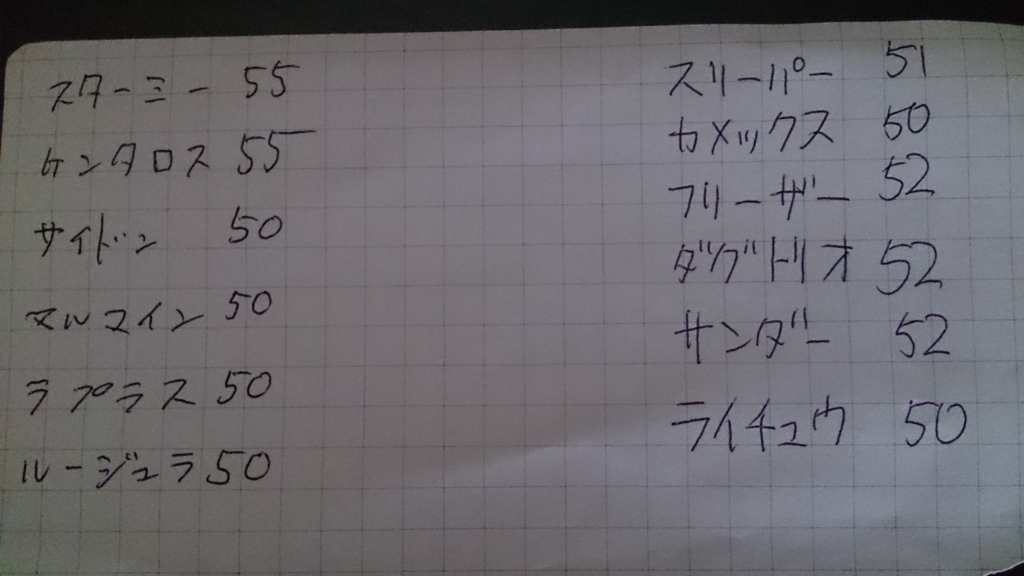 スターミー 55
ケンタロス 55
サイドン 50
マルマイン 50
ラプラス 50
ルージュラ 50
スリーパー 51
カメックス 50
フリーザー 52
ダグトリオ 52
サンダー 52
ライチュウ 50